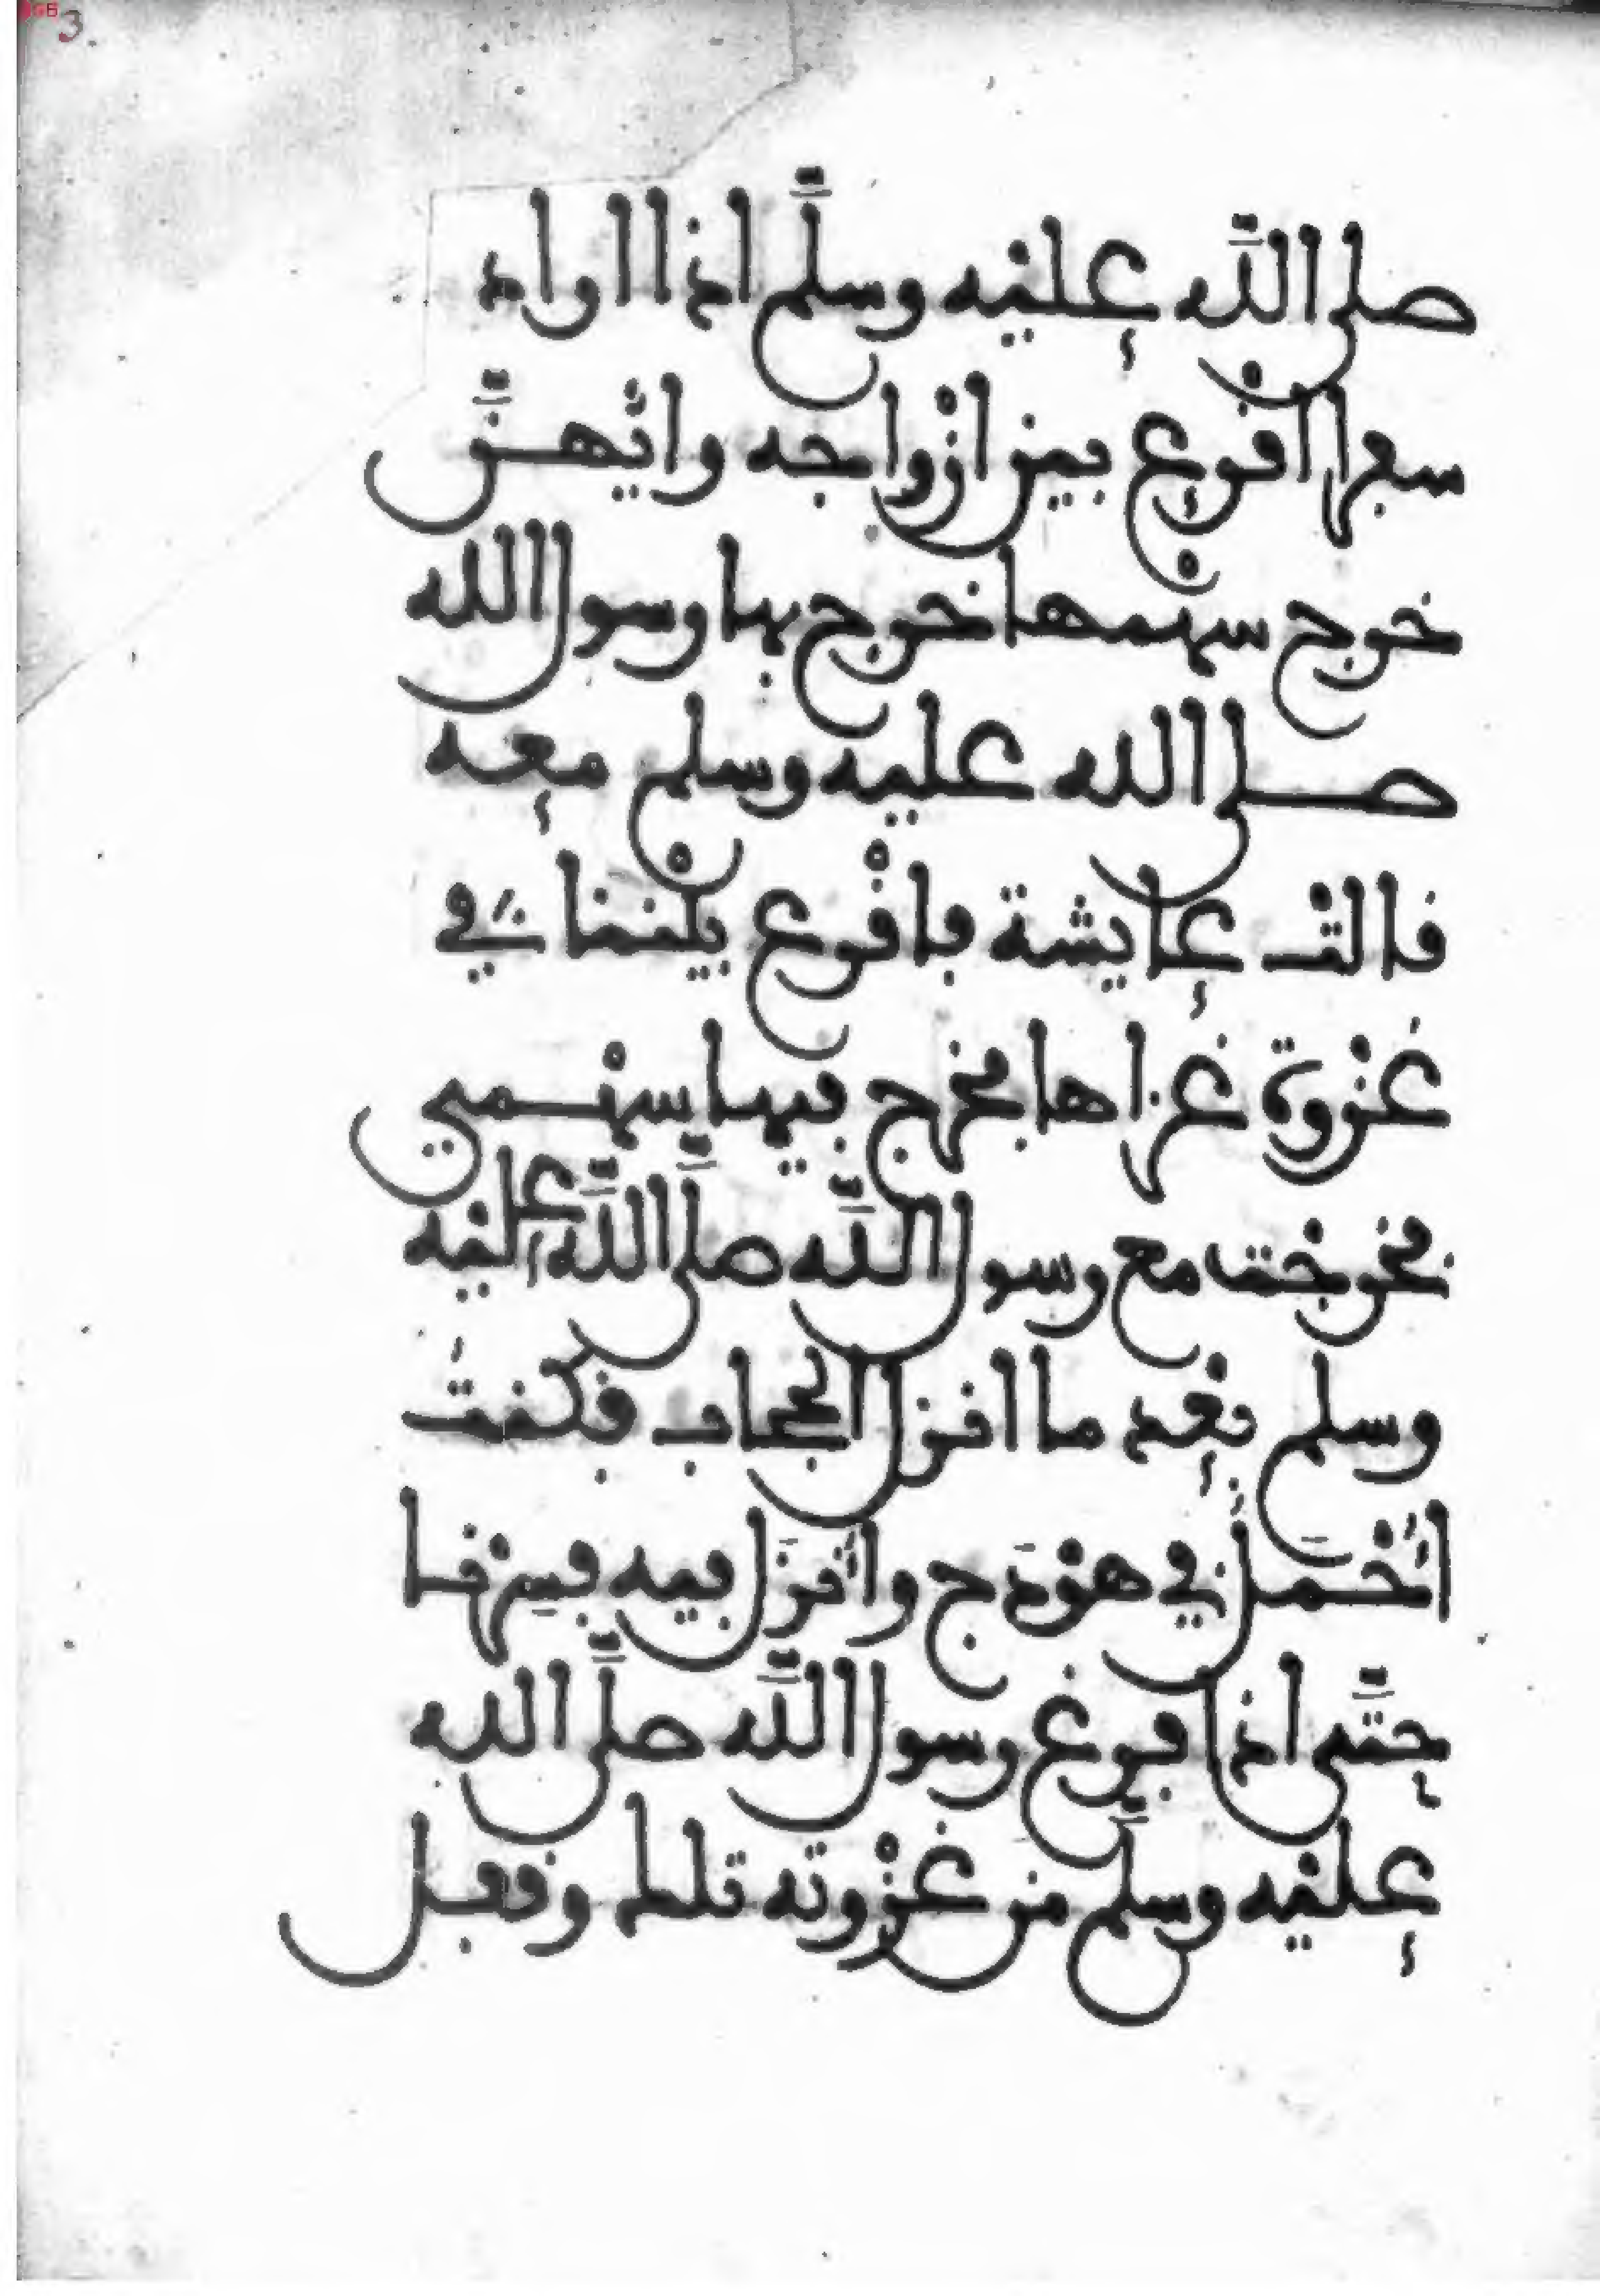 3
صلى الله عليه وسلم اذا اراد
سفرا اقرع بين ازواجه وايهن
خرج سهمها خرج بها رسول الله
صلى الله عليه وسلم معه
قالت عايشة فاقرع بيننا في
غزوة غزاها فخرج فيها سهمي
فخرجت مع رسول الله صلى الله عليه
وسلم بعد ما انزل الحجاب فكنت
احمل في هودج وانزل فيه فسرنا
حتى اذا فرغ رسول الله صلى الله
عليه وسلم من غزوته تلك وقفل